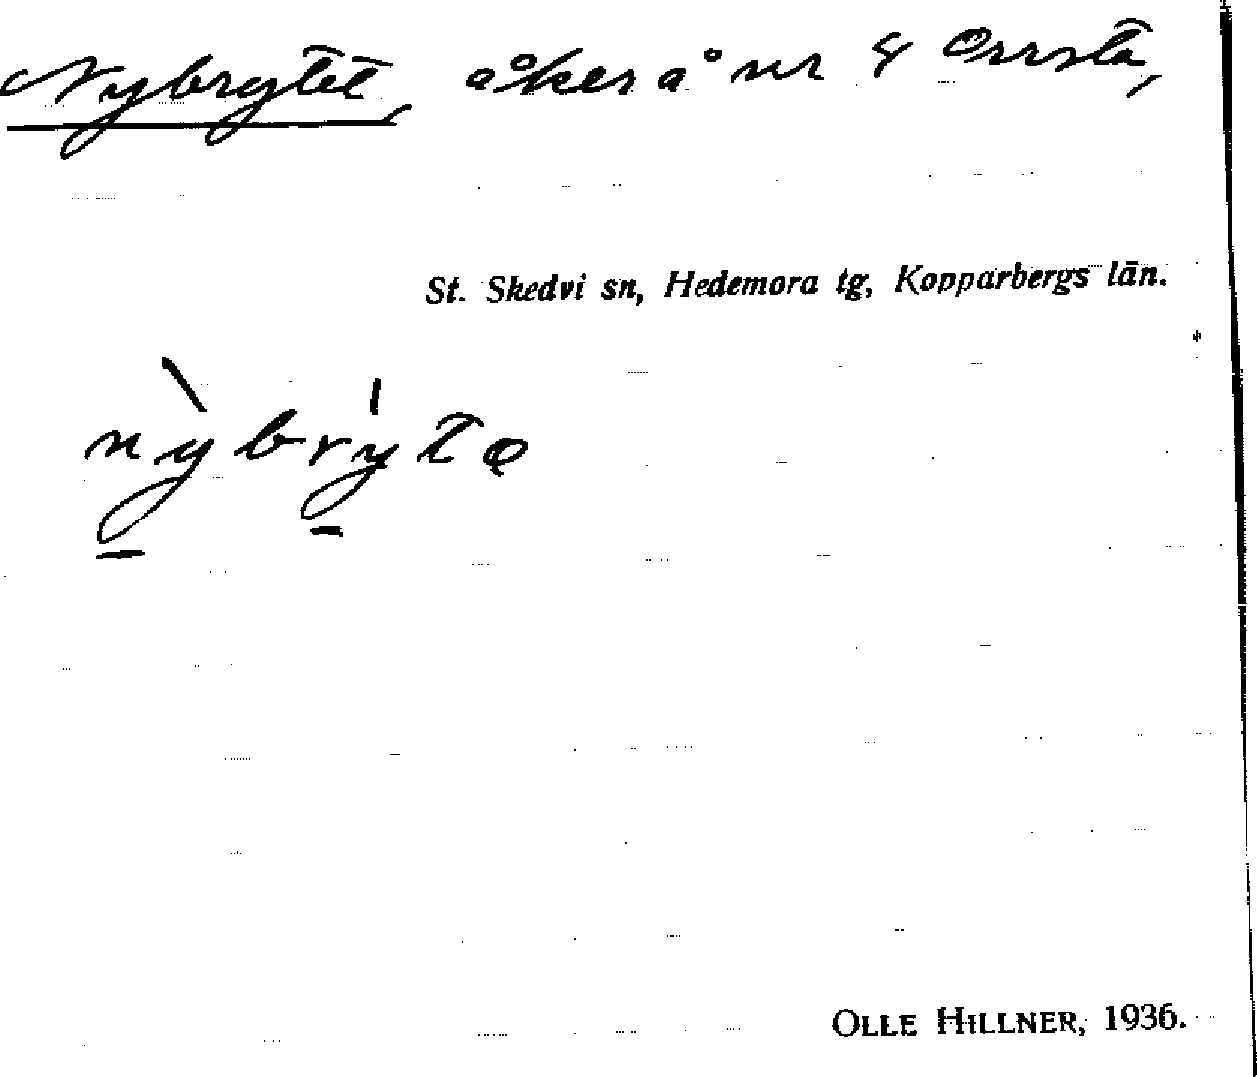 Nybrytet, åker å nr 8 Örrsta,
St. Skedvi sn, Hedemora tg, Kopparbergs län.
nỳbrýtǫ
OLLE HILLNER, 1936.